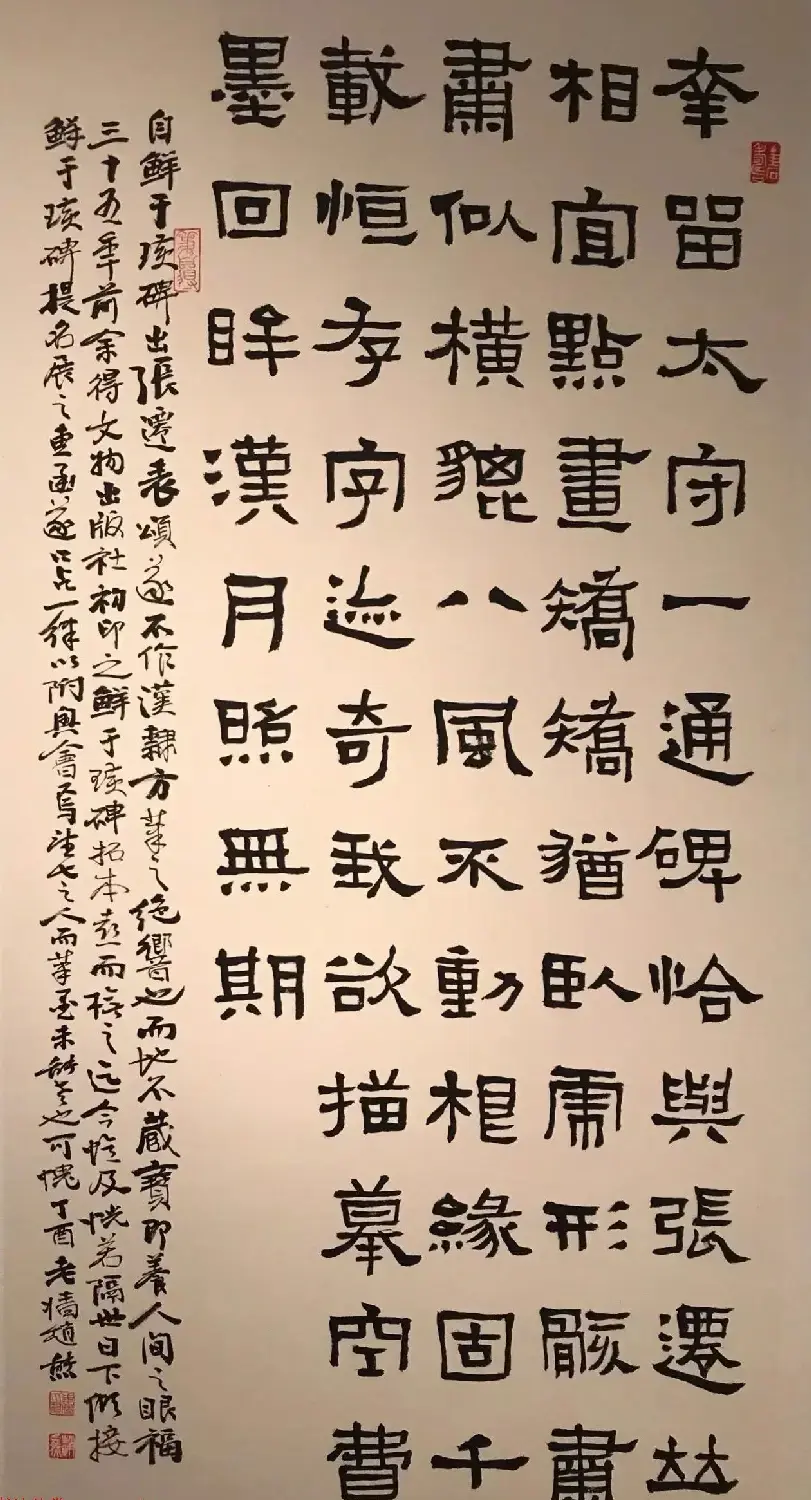 幸留太守一通碑恰與張遷竝
相宜點畫矯矯猶臥虎形骸肅
肅似橫貔八風不動相緣固千
載恒存字迹奇我欲描摹空費
墨回眸漢月照無期
自鮮于璜碑出張遷表頌遂不作漢隸方筆之絕響也而地不藏寶即養人間之眼福
三十五年前余得文物出版社初印之鮮于璜碑拓本喜而之迄今憶及恍若隔世日下接
鮮于璜碑提名展之惠函遂口占一律以附興會焉之人而筆墨未能老也可愧丁酉老墻趙熊